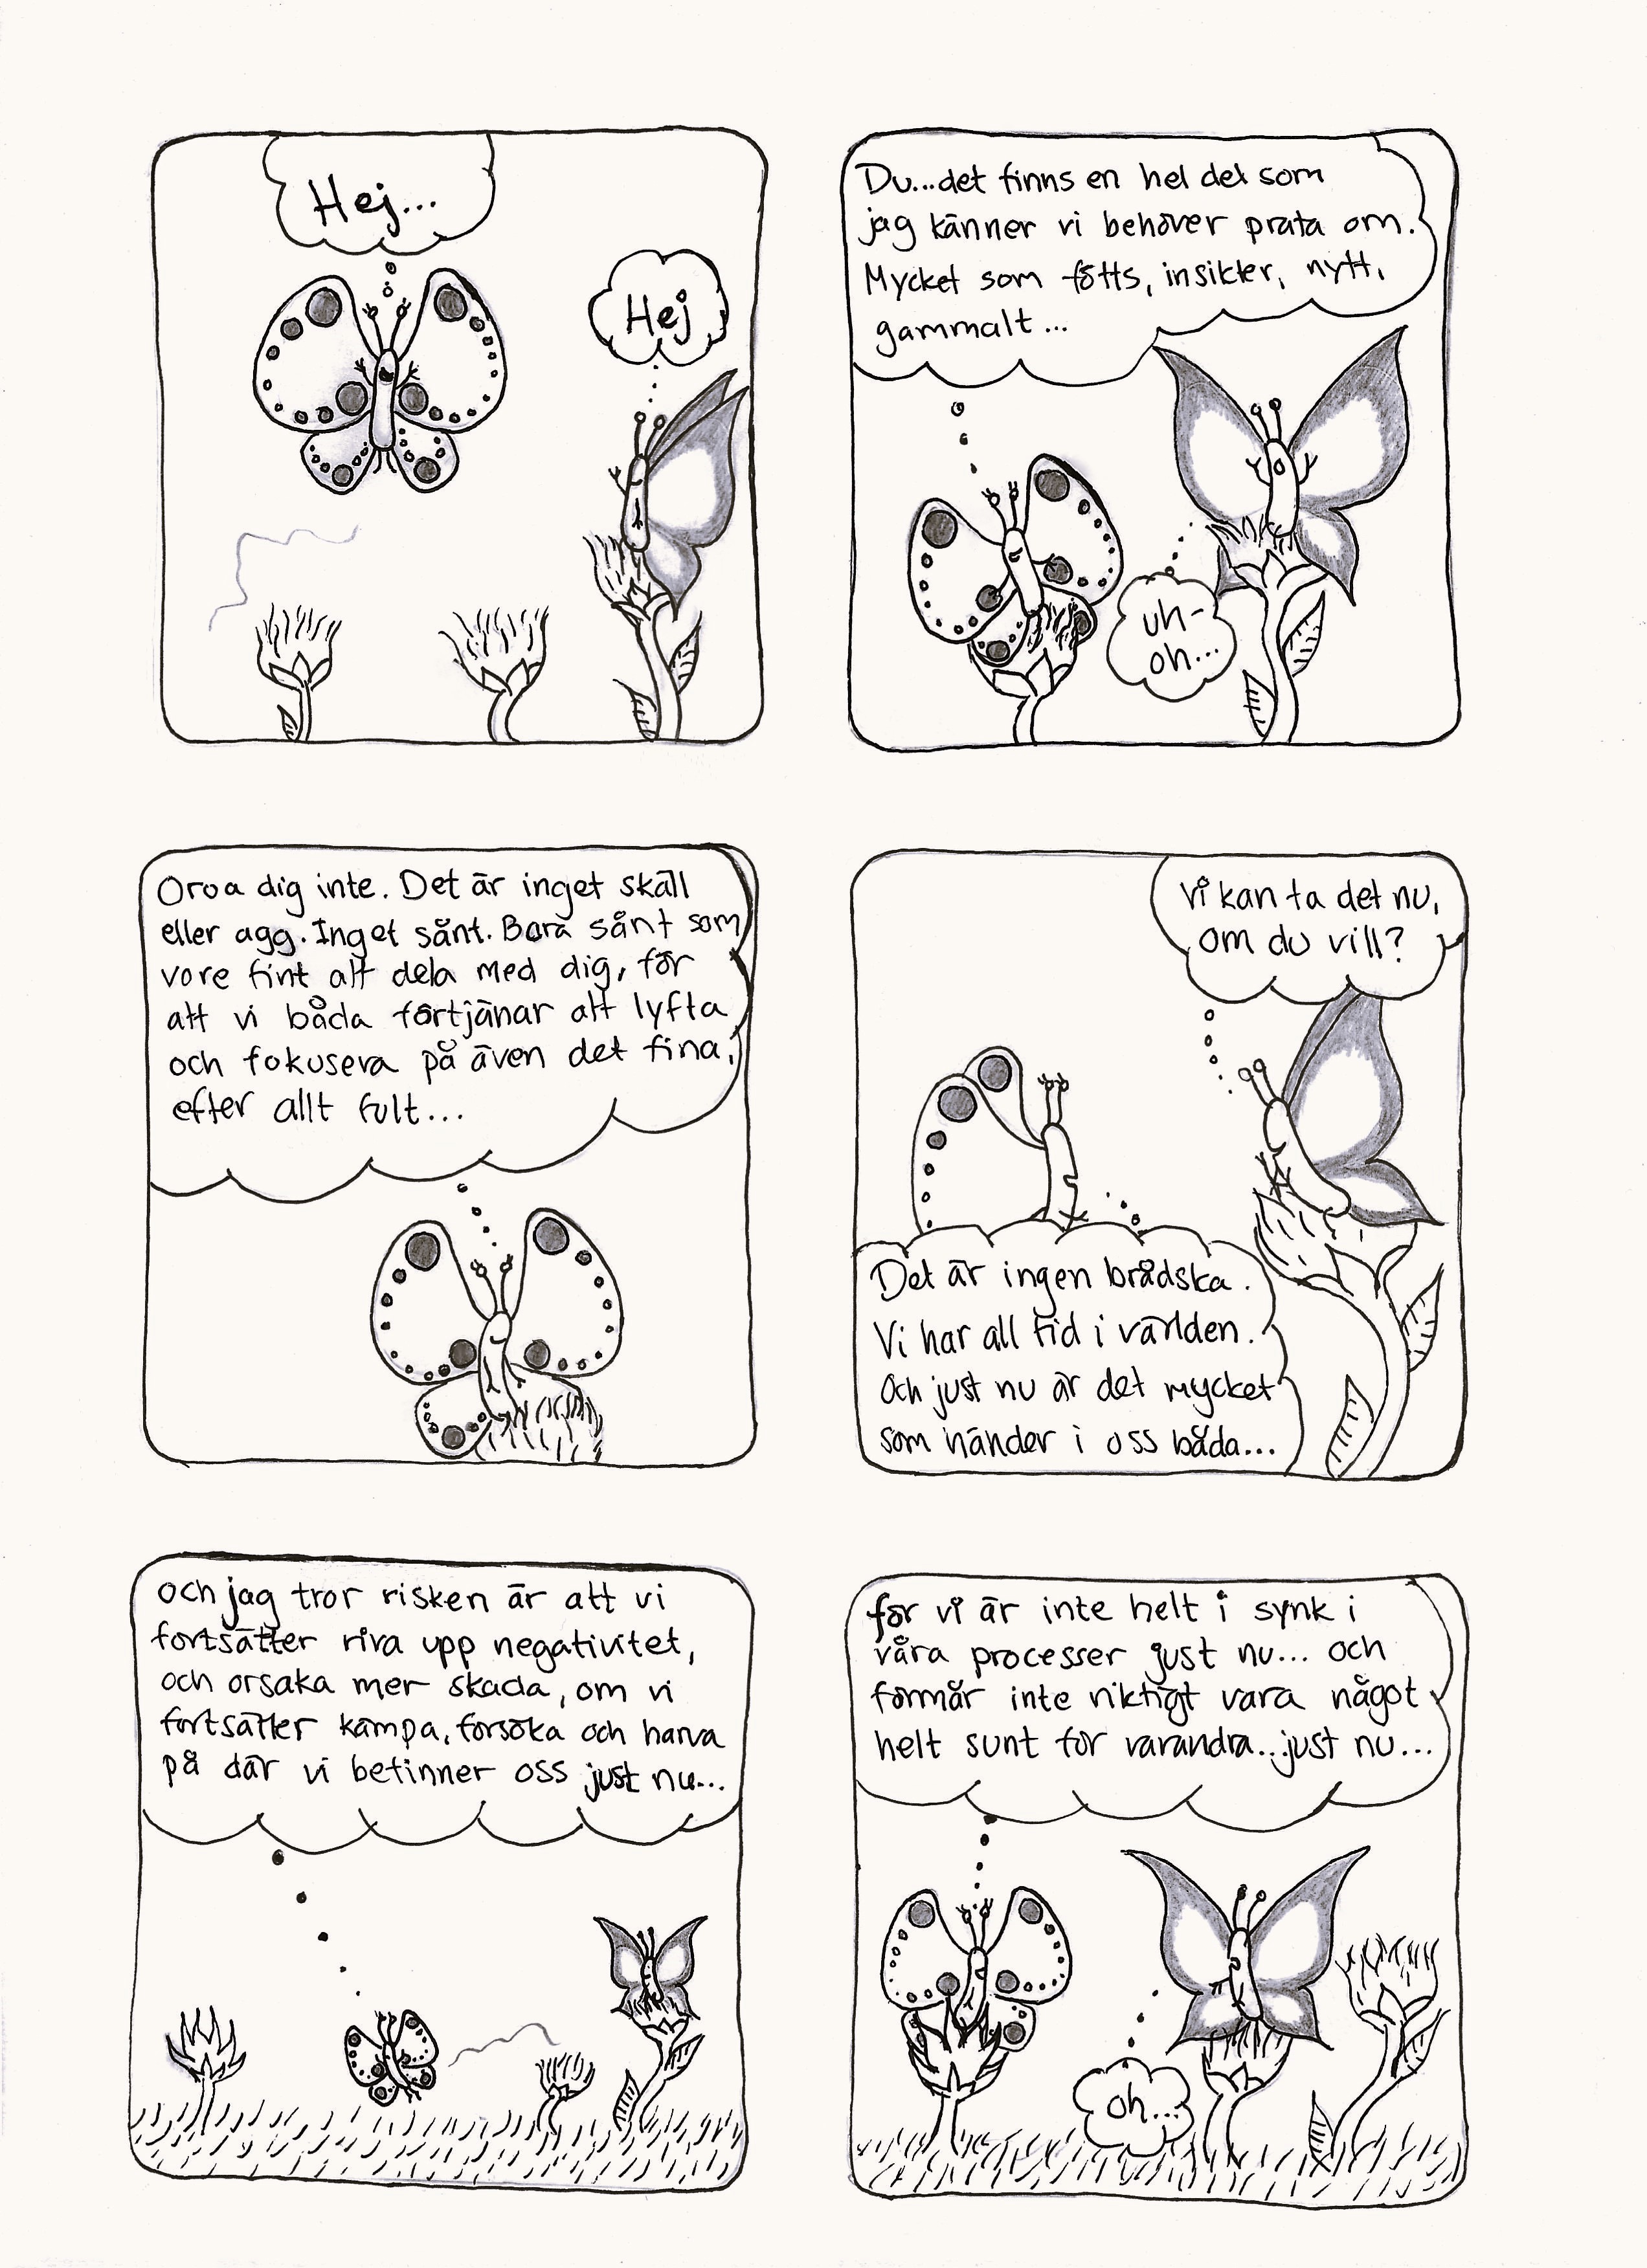 Hej...
Hej
Du...det finns en hel del som
jag känner vi behöver prata om.
Mycket som fötts, insikter, nytt,
gammalt...
uh-
oh...
Oroa dig inte. Det är inget skäll
eller agg. Inget sånt. Bara sånt som
vore fint att dela med dig, för
att vi båda förtjänar att lyfta
och fokusera på även det fina,
efter allt fult...
Vi kan ta det nu,
om du vill?
Det är ingen brådska.
Vi har all tid i världen.
Och just nu är det mycket
som händer i oss båda...
och jag tror risken är att vi
fortsätter riva upp negativitet,
och orsaka mer skada, om vi
fortsätter kämpa, försöka och harva
på där vi befinner oss just nu...
för vi är inte helt i synk i
våra processer just nu... och
förmår inte riktigt vara något
helt sunt för varandra...just nu...
oh...